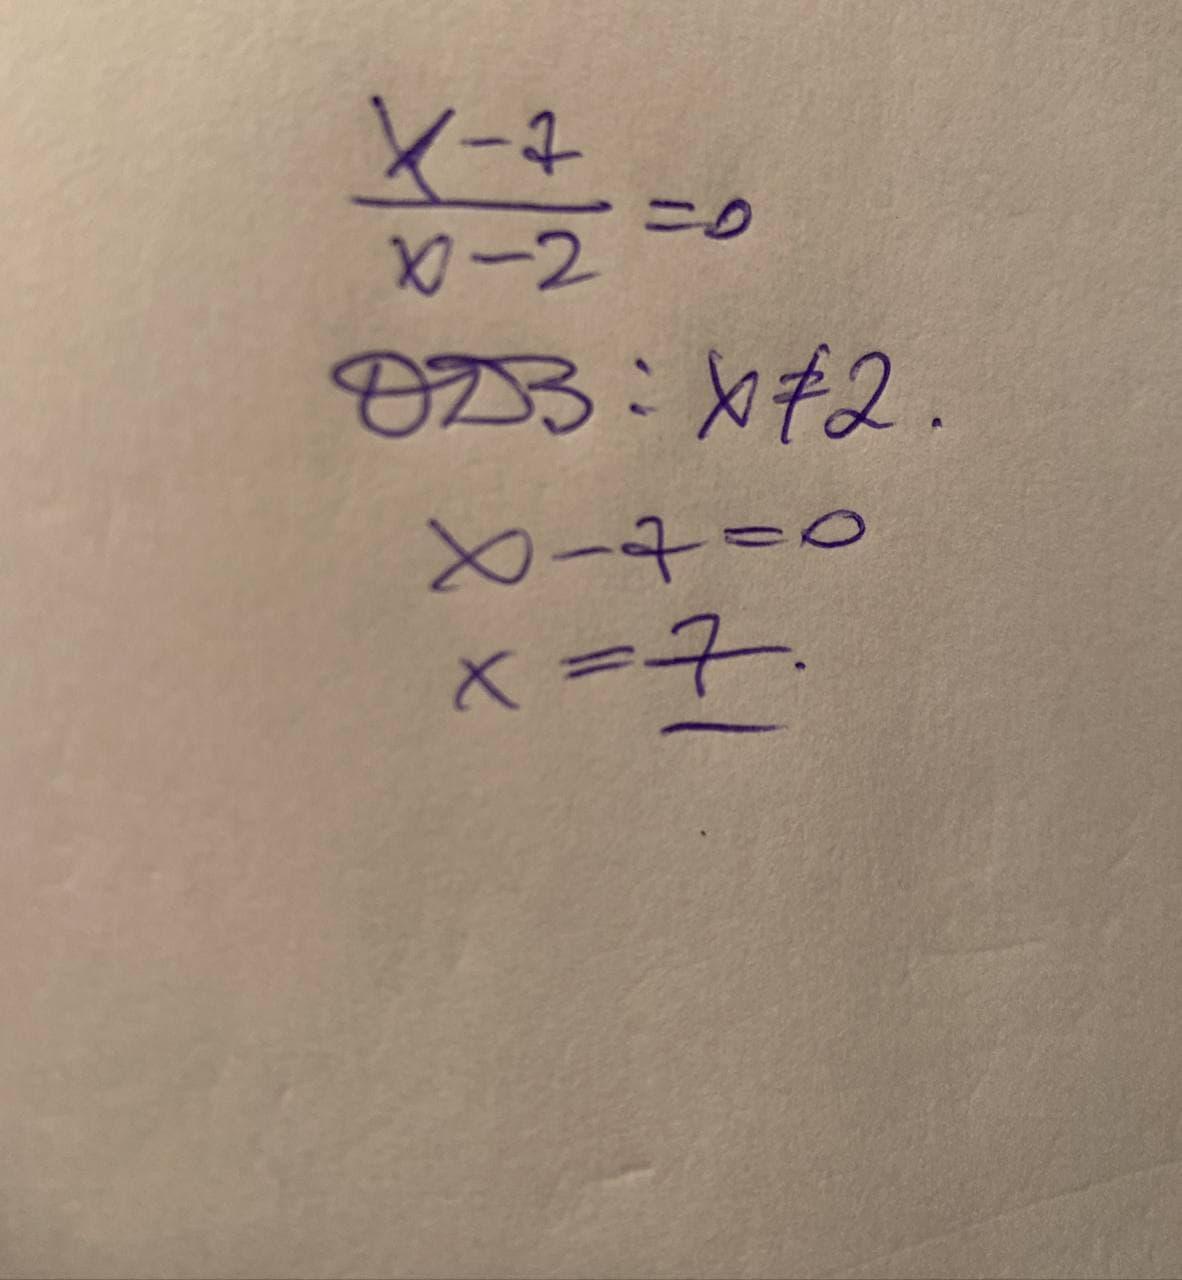 x-7
x-2 =0
ОДЗ: x≠2.
x-7=0
x=7.